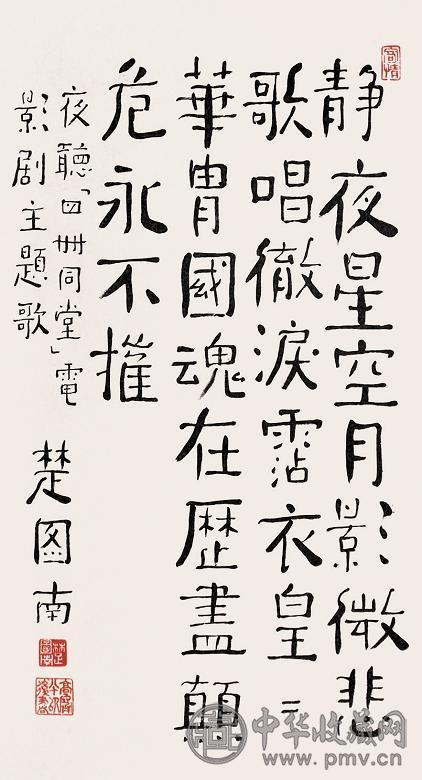 静夜星空月影微悲
歌唱徹淚霑衣皇〻
華胄國魂在歷盡顛
危永不摧
夜聽「四世同堂」電
影剧主題歌
楚图南
中华收藏网
www.pmv.cn